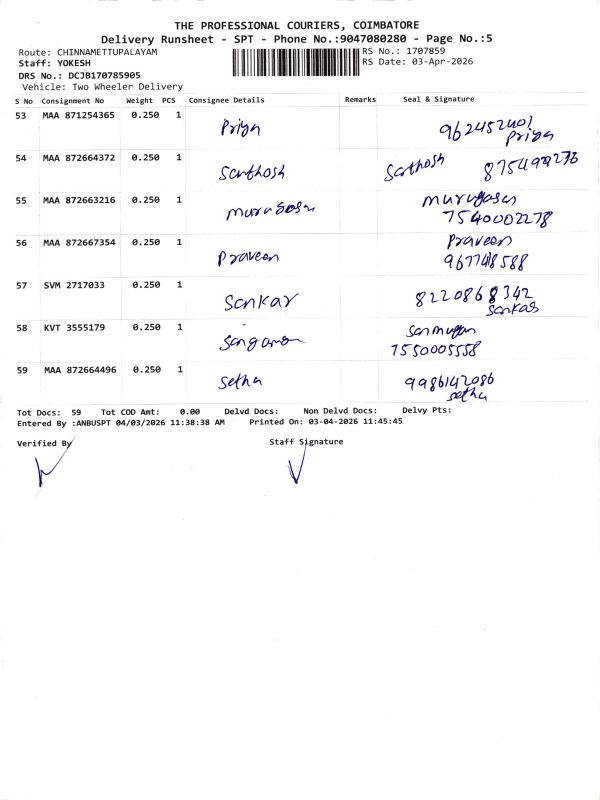 THE PROFESSIONAL COURIERS, COIMBATORE
Delivery Runsheet - SPT - Phone No.:9047080280 - Page No.:5
Route: CHINNAMETTUPALAYAM RS No.: 1707859
Staff: YOKESH RS Date: 03-Apr-2026
DRS No.: DCJB170785905
Vehicle: Two Wheeler Delivery
S No Consignment No Weight PCS Consignee Details Remarks Seal & Signature
53 MAA 871254365 0.250 1 Priya 962452401
Priya
54 MAA 872664372 0.250 1 Santhosh Santhosh
55 MAA 872663216 0.250 1 murugesan murugesan
7540002278
56 MAA 872667354 0.250 1 Praveen Praveen
57 SVM 2717033 0.250 1 Sankar 8220868342
Sankar
58 KVT 3555179 0.250 1 Sanmugan
7550005558
59 MAA 872664496 0.250 1 Setha 9986142086
Setha
Tot Docs: 59 Tot COD Amt: 0.00 Delvd Docs: Non Delvd Docs: Delvy Pts:
Entered By :ANBUSPT 04/03/2026 11:38:38 AM Printed On: 03-04-2026 11:45:45
Verified By Staff Signature